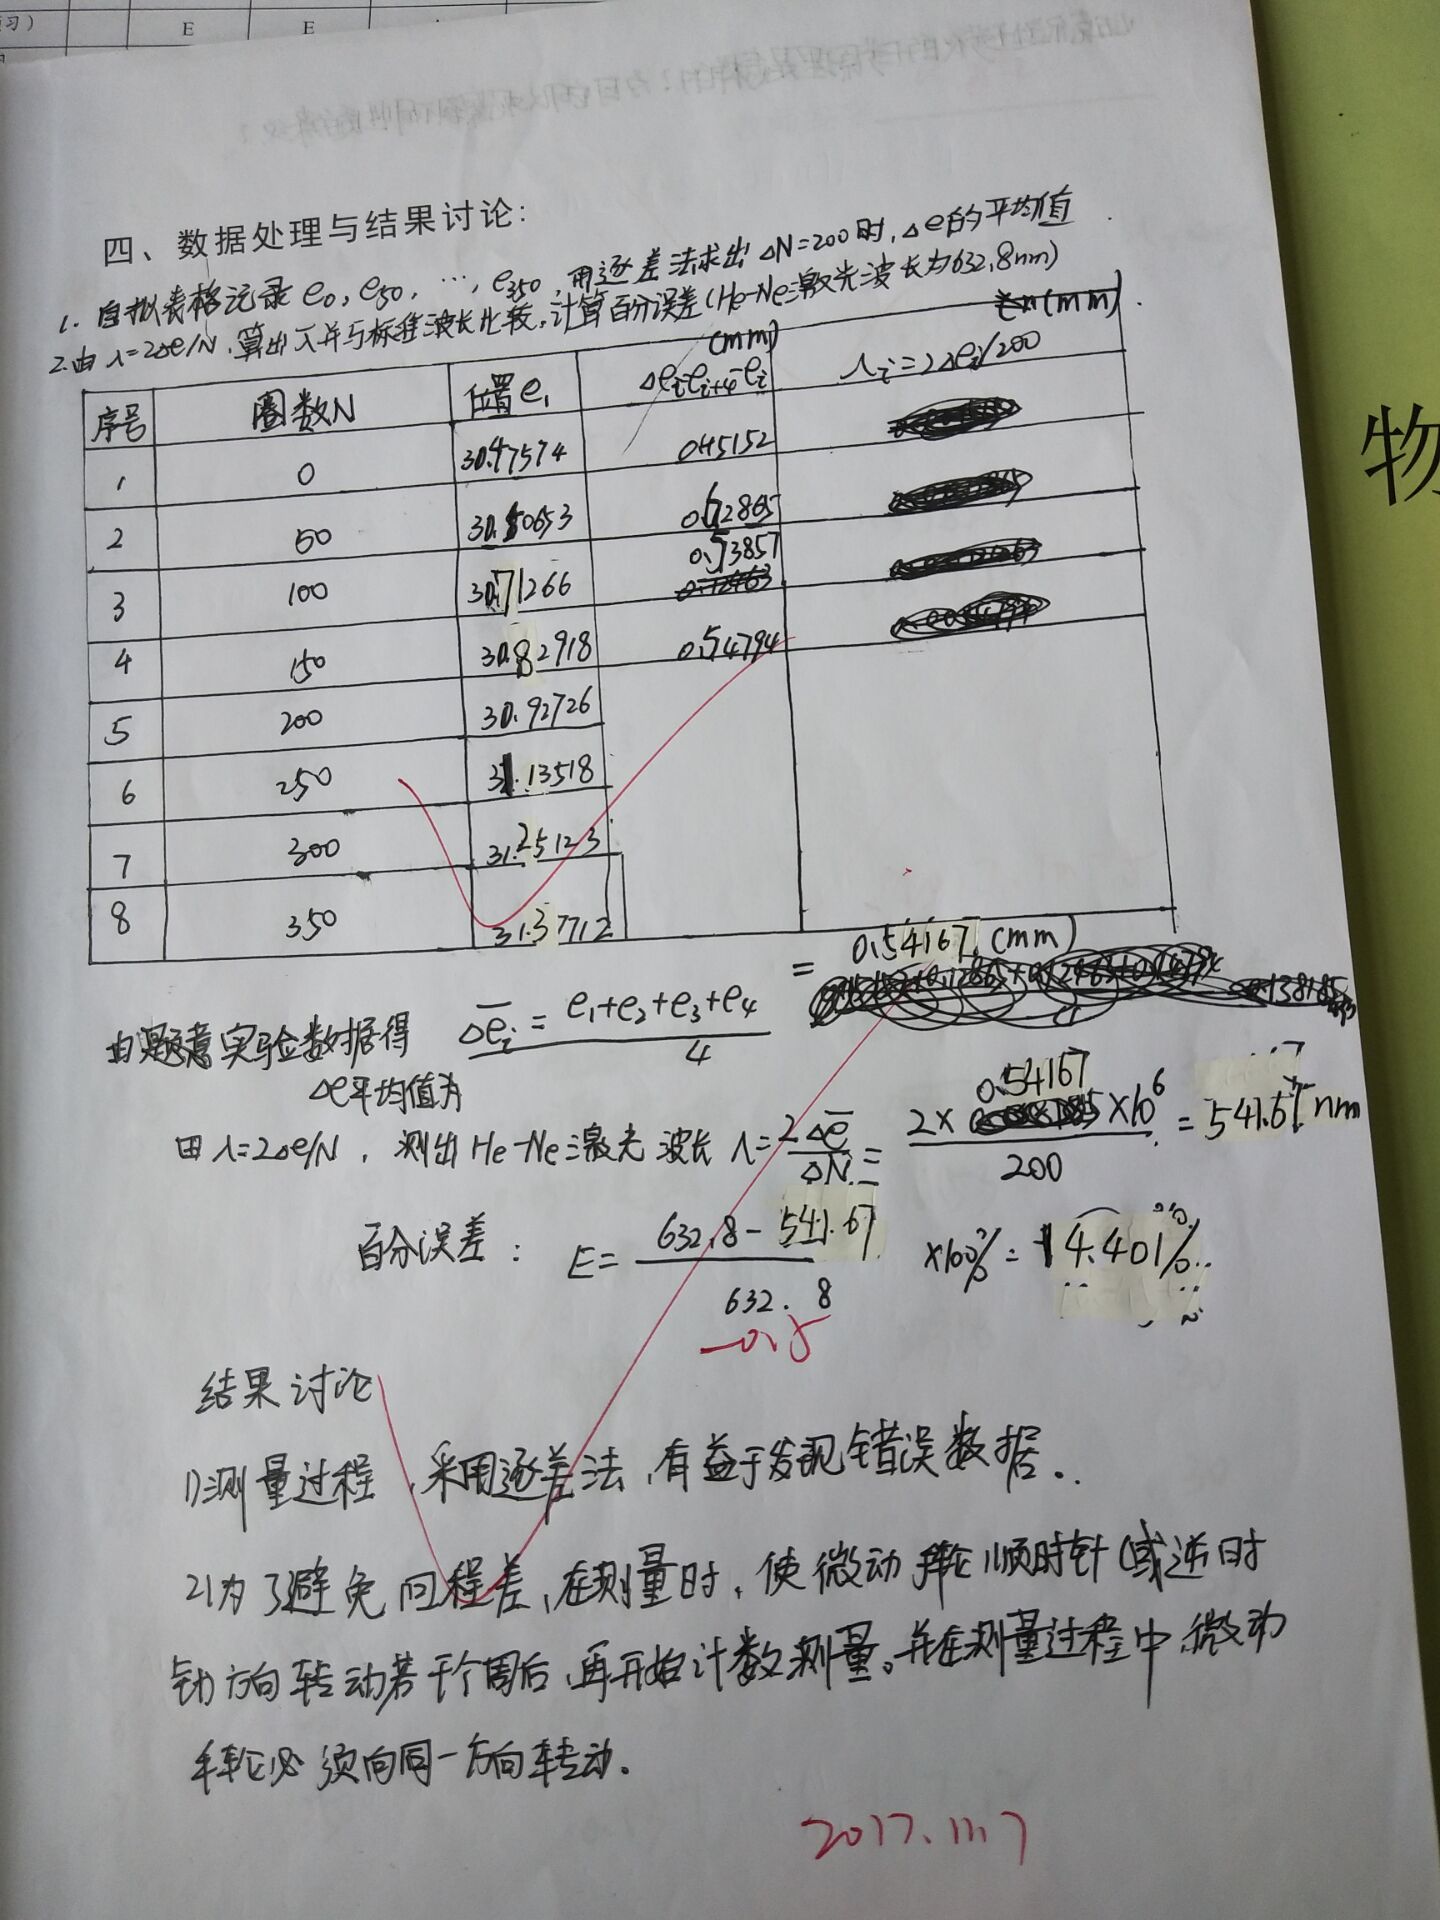 习）
E E
四、数据处理与结果讨论:
1. 自拟表格记录e₀, e₅₀, …, e₃₅₀, 用逐差法求出 △N=200时, △e的平均值.
2.由 λ=2△e/N, 算出λ并与标准波长比较。计算百分误差(He-Ne激光波长为632.8nm)
序号 圈数N 位置e₁ (mm) △eᵢ=eᵢ₊₄-eᵢ (mm) λᵢ=2△eᵢ/200
1 0 30.47574 0.45152
2 50 30.50653 0.62865
3 100 30.71266 0.53857
4 150 30.82918 0.54794
5 200 30.92726
6 250 31.13518
7 300 31.25123
8 350 31.37712
由题意实验数据得 △eᵢ = e₁+e₂+e₃+e₄ / 4 = 0.54167 (mm)
△e平均值为
由λ=2△e/N, 测出He-Ne激光波长 λ= 2△e / △N = 2×0.54167×10⁶ / 200 = 541.67nm
百分误差: E= 632.8-541.67 / 632.8 ×100% = 14.401%
-0.5
结果讨论
1)测量过程,采用逐差法,有益于发现错误数据。
2)为了避免回程差,在测量时,使微动手轮顺时针(或逆时
针)方向转动若干个周后,再开始计数测量。并在测量过程中,微动
手轮必须向同一方向转动.
2017.11.7
物